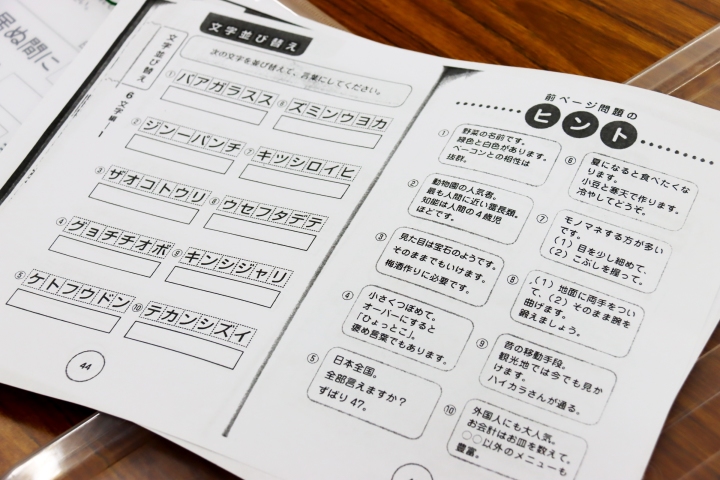 ぬ間に
文字並び替え
文字並び替え
6文字編-1
次の文字を並び替えて、言葉にしてください。
① パアガラスス
② ジンーパンチ
③ ザオコトウリ
④ グョチチオボ
⑤ ケトフウドン
⑥ ズミンウヨカ
⑦ キツシロイヒ
⑧ ウセフタデテ
⑨ キンシジャリ
⑩ テカンシズイ
44
前ページ問題の
ヒント
① 野菜の名前です。
緑色と白色があります。
ベーコンとの相性は
抜群。
② 動物園の人気者。
最も人間に近い霊長類。
知能は人間の4歳児
ほどです。
③ 見た目は宝石のようです。
そのままでもいけます。
梅酒作りに必要です。
④ 小さくつぼめて。
オーバーにすると
「ひょっとこ」。
褒め言葉でもあります。
⑤ 日本全国。
全部言えますか？
ずばり47。
⑥ 夏になると食べたくな
ります。
小豆と寒天で作ります。
冷やしてどうぞ。
⑦ モノマネする方が多い
です。
(1) 目を少し細めて、
(2) こぶしを握って。
⑧ (1) 地面に両手をつい
て、(2) そのまま腕を
曲げます。
鍛えましょう。
⑨ 昔の移動手段。
観光地では今でも見か
けます。
ハイカラさんが通る。
⑩ 外国人にも大人気。
お会計はお皿を数えて。
○○以外のメニューも
豊富。